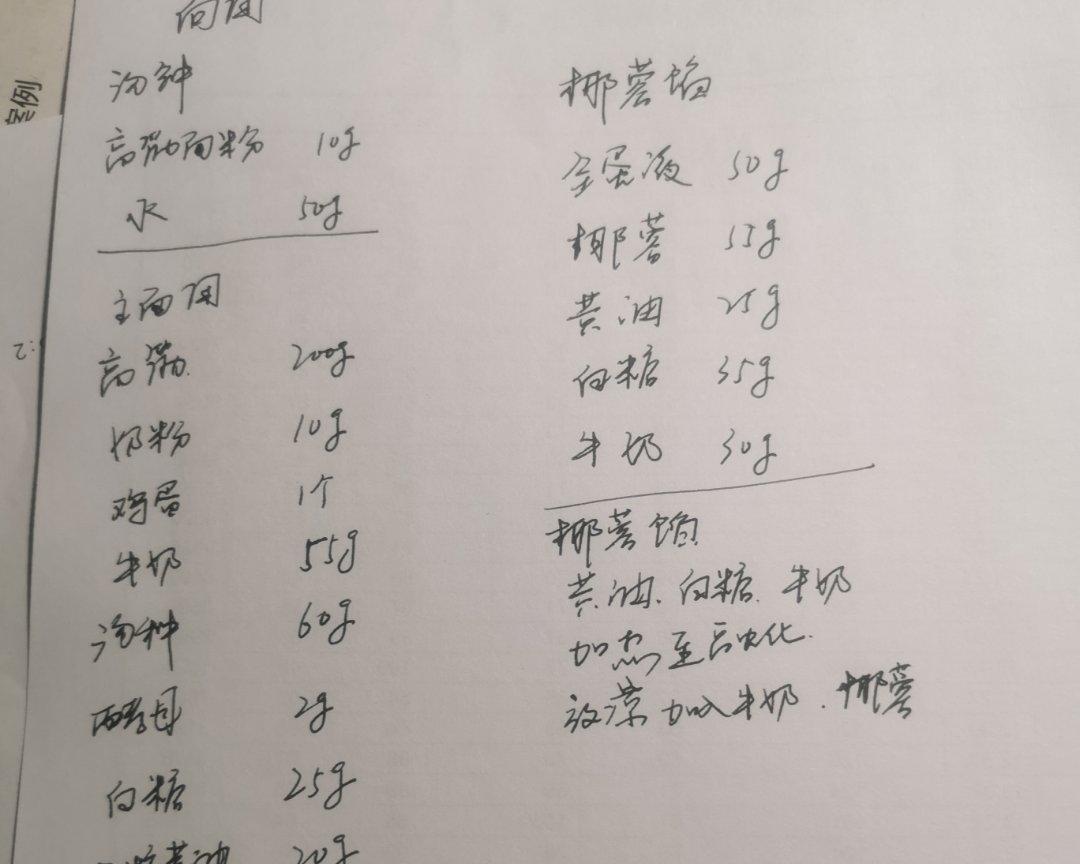 面团
汤钟
高筋面粉 10g
水 50g
主面团
高筋 200g
奶粉 10g
鸡蛋 1个
牛奶 55g
汤种 60g
酵母 2g
白糖 25g
黄油 20g
椰蓉馅
全蛋液 50g
椰蓉 55g
黄油 25g
白糖 35g
牛奶 30g
椰蓉馅
黄油、白糖、牛奶
加热至融化.
放凉加入牛奶、椰蓉
案例